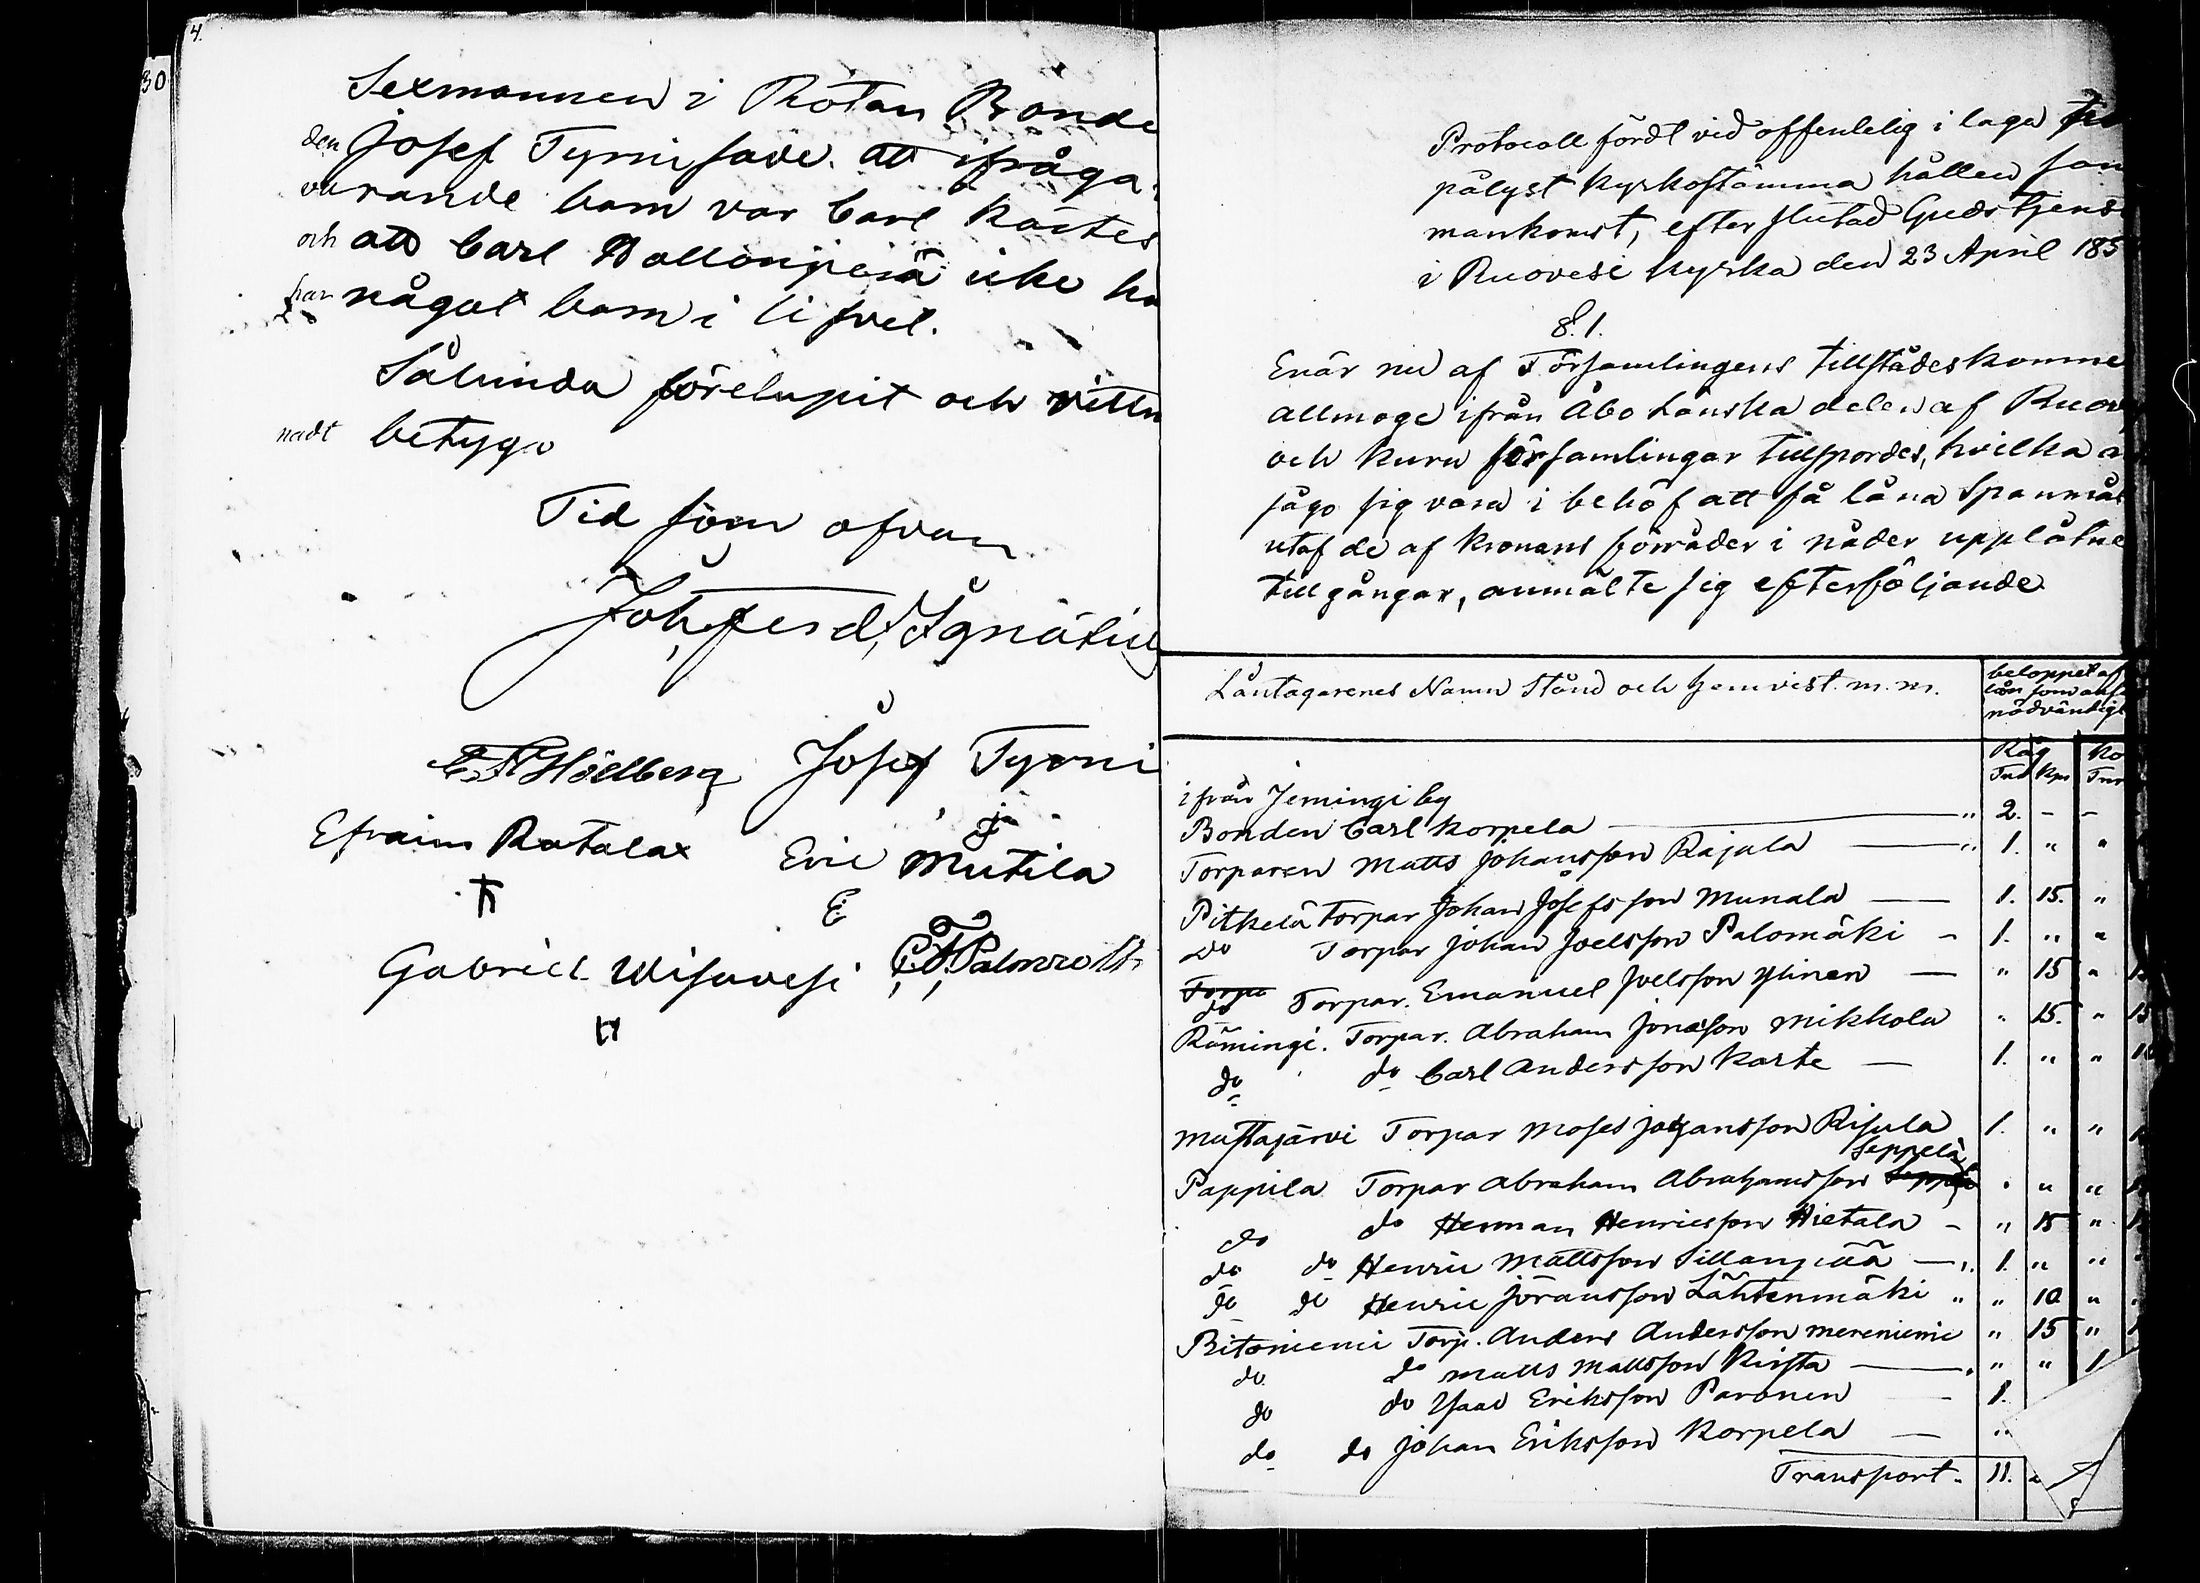 4.
30
Sexmannen i Rotan Bonde
den Josef Tyrni sade att ifråga
varande barn var Carl Kartes
och att Carl icke ha
har något barn i lifvet.
Sålunda förelupit och vittn
nadt betyga
Tid som ofvan
Joh, Ferd, Ignatius
Josef Tyrni
Efraim Ratala Eric ja Mutila
E
Gabriel Wisuvesi
Protocoll fördt vid offentelig i laga
pålyst kyrkostämma hållen
mankomst, efter slutad Gudstjens
i Ruovesi kyrka den 23 April 185
§. 1.
Enär nu af Församlingens tillstädeskomne
allmoge ifrån Åbo Länska delen af Ruov
och Kuru församlingar tillspordes, hvilka a
sågo sig vara i behof att få låna Spanmål
utaf de af Kronans förråder i nåder upplåtne
tillgångar, anmälte sig efterföljande
Låntagarenes Namn Stånd och hemvist. m. m. beloppet af
lån som anse
nödvändigt
Råg Ko
Tnr Kpr Tnr
ifrån Jemingi by
Bonden Carl Korpela — " 2. - -
Torparen Matts Johansson Rajala — " 1. " "
Pitkelä Torpar Johan Josefsson Munala — 1. 15. "
do Torpar Johan Joelsson Palomäki - 1. " "
Torpa
do Torpar. Emanuel Joelsson Ylinen — " 15 " 1
Rämingi. Torpar. Abraham Jonasson Mikkola " 15. " 15
do do Carl Andersson Karte — 1. " " 1
Mustajärvi Torpar Moses Johansson Risula 1. " "
Seppelä
Pappila Torpar Abraham Abrahamsson " " "
do do Herman Henricsson Hietala - " 15 "
do do Henric Mattsson Sillanpää — " 1. " "
do do Henric Jöransson Lähtenmäki " " 10 "
Ritoniemi Torp. Anders Andersson Mereniemi " 15 "
do do Matts Mattsson Kirsta — " " 1
do do Isaac Eriksson Paronen — 1.
do do Johan Eriksson Korpela — "
Transport. 11. "